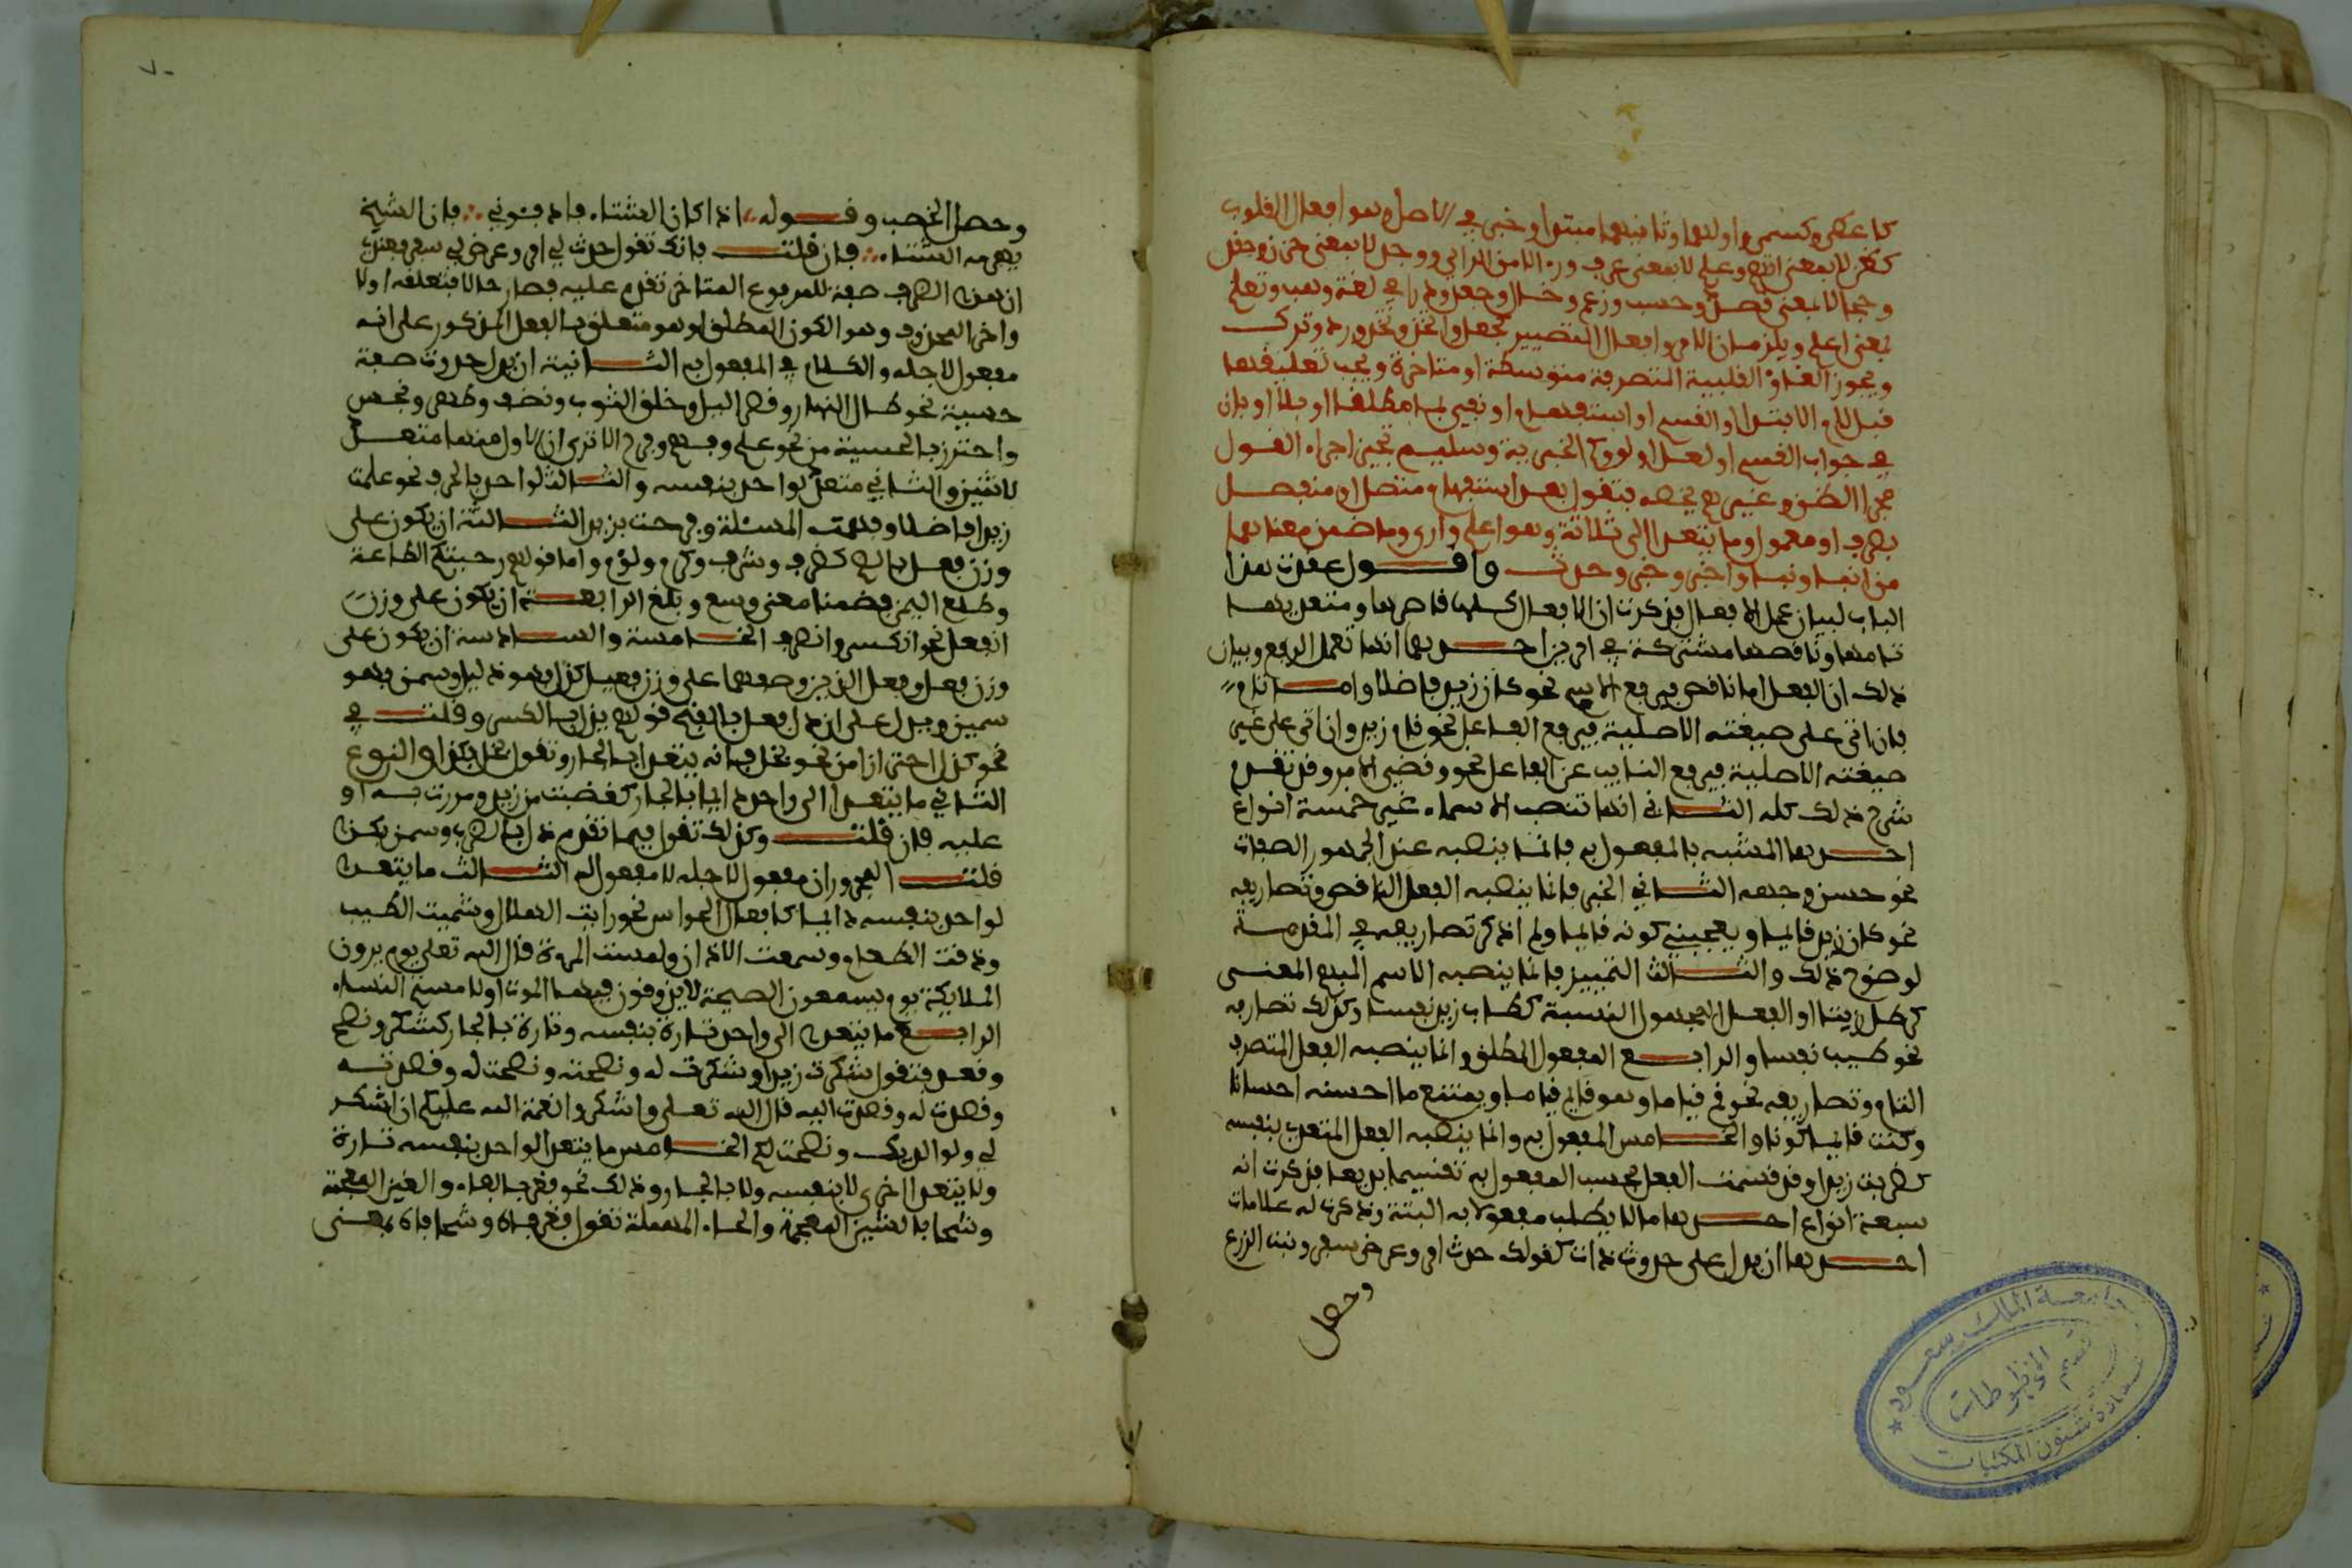 كأعطى وكسى واولهما وثانيهما مبتدا وخبر في الاصل وهو افعال القلوب
كظن لا بمعنى اتهم وعلم لا بمعنى عرف وراى لا من الراي ووجد لا بمعنى حزن وحقد
وحجا لا بمعنى قصد وحسب وزعم وخال وجعل ودرا في لغية وهب وتعلم
بمعنى اعلم ويلزمان الامر وافعال التصيير كجعل واتخذ وتخذ ورد وترك
ويجوز الغاء القلبية المتصرفة متوسطة او متاخرة ويجب تعليقها
قبل لام الابتدا او القسم او استفهام او نفي بما مطلقا او بلا او بان
في جواب القسم او لعل او لو او كم الخبرية وسليم تجيز اجراء القول
مجرا الظن وغيرهم يخصه بتقول بعد استفهام متصل او منفصل
بظرف او معمول وما يتعدا الى ثلاثة وهو اعلم وارى وما ضمن معناهما
من انبا ونبا واخبر وخبر وحدث واقول عقدت هذا
الباب لبيان عمل الافعال فذكرت ان الافعال كلها قاصرها ومتعديها
تامها وناقصها مشتركة في امرين احدهما انها تعمل الرفع وبيان
ذلك ان الفعل اما ناقص فيرفع الاسم نحو كان زيد فاضلا واما تام
فان اتى على صيغته الاصلية فيرفع الفاعل نحو قام زيد وان اتى على غير
صيغته الاصلية فيرفع النايب عن الفاعل نحو وقضي الامر وقد تقدم
شرح ذلك كله الثاني انها تنصب الاسماء غير خمسة انواع
احدها المشبه بالمفعول به فانما ينصبه عند الجمهور الصفات
نحو حسن وجهه الثاني الخبر فانما ينصبه الفعل الناقص وتصاريفه
نحو كان زيد قايما ويعجبني كونه قايما ولم اذكر تصاريفه في المقدمة
لوضوح ذلك والثالث التمييز فانما ينصبه الاسم المبهم المعنى
كرطل زيتا او الفعل المجهول النسبة كطاب زيد نفسا وكذلك تصاريفه
نحو طيب نفسا والرابع المفعول المطلق وانما ينصبه الفعل المتصرف
التام وتصاريفه نحو قم قياما وهو قايم قياما ويمتنع ما احسنه احسانا
وكنت قايما كونا والخامس المفعول به وانما ينصبه الفعل المتعدي بنفسه
كضربت زيدا وقد قسمت الفعل بحسب المفعول به تقسيما بديعا فذكرت انه
سبعة انواع احدها ما لا يطلب مفعولا به البتة وذكرت له علامات
احدها ان يدل على حدوث ذات كقولك حدث امر وعرض سفر ونبت الزرع
وحصل
وحصل الخصب وقوله اذا كان الشتاء فادفئوني فان الشيخ
يهرمه الشتاء فان قلت فانك تقول حدث لي امر وعرض لي سفر فعندي
ان هذا الظرف صفة للمرفوع المتاخر تقدم عليه فصار حالا فتعلقه اولا
واخرا المحذوف وهو الكون المطلق او هو متعلق بالفعل المذكور على انه
مفعول لاجله والكلام في المفعول به الثانية ان يدل حدوث صفة
حسية نحو طال النهار وقصر الليل وخلق الثوب ونظف وطهر ونجس
واحترز بالحسية من نحو علم وفهم وفرح الا ترى ان الاول منها متعد
لاثنين والثاني متعد لواحد بنفسه والثالث لواحد بالحرف نحو علمت
زيدا فاضلا وفهمت المسئلة وفرحت بزيد الثالثة ان يكون على
وزن فعل بالضم كظرف وشرف وكرم ولؤم واما قولهم رحبتكم الطاعة
وطلع اليمن فضمنا معنى وسع وبلغ الرابعة ان يكون على وزن
انفعل نحو انكسر وانصرف الخامسة والسادسة ان يكون على
وزن فعل وفعل الذين وصفهما على وزن فعيل كذل فهو ذليل وسمن فهو
سمين ويدل على ان ذل فعل بالفتح قولهم يذل بالكسر وقلت في
نحو كذا احترازا من نحو بخل فانه يتعدا بالجار وتقول بخل بكذا والنوع
الثاني ما يتعدا الى واحد دايما بالجار كغضبت من زيد ومررت به او
عليه فان قلت وكذلك تقول فيما تقدم ذل بالضرب وسمن بكذا
قلت المجروران مفعول لاجله لا مفعول به الثالث ما يتعدى
لواحد بنفسه دايما كافعال الحواس نحو رايت الهلال وشممت الطيب
وذقت الطعام وسمعت الاذان ولمست المراة قال الله تعلى يوم يرون
الملايكة يوم يسمعون الصيحة لا يذوقون فيها الموت اولامستم النساء
الرابع ما يتعدى الى واحد تارة بنفسه وتارة بالجار كشكر ونصح
وقصد فتقول شكرت زيدا وشكرت له ونصحته ونصحت له وقصدته
وقصدت له وقصدت اليه قال الله تعلى واشكروا نعمة الله عليكم ان اشكر
لي ولوالديك ونصحت لكم الخامس ما يتعدا لواحد بنفسه تارة
ولا يتعدا اخرى لا بنفسه ولا بالجار وذلك نحو فغر بالفاء والغين المعجمة
وشحا بالشين المعجمة والحاء المهملة تقول فغر فاه وشحا فاه بمعنى
جامعة الملك سعود
قسم المخطوطات
عمادة شئون المكتبات